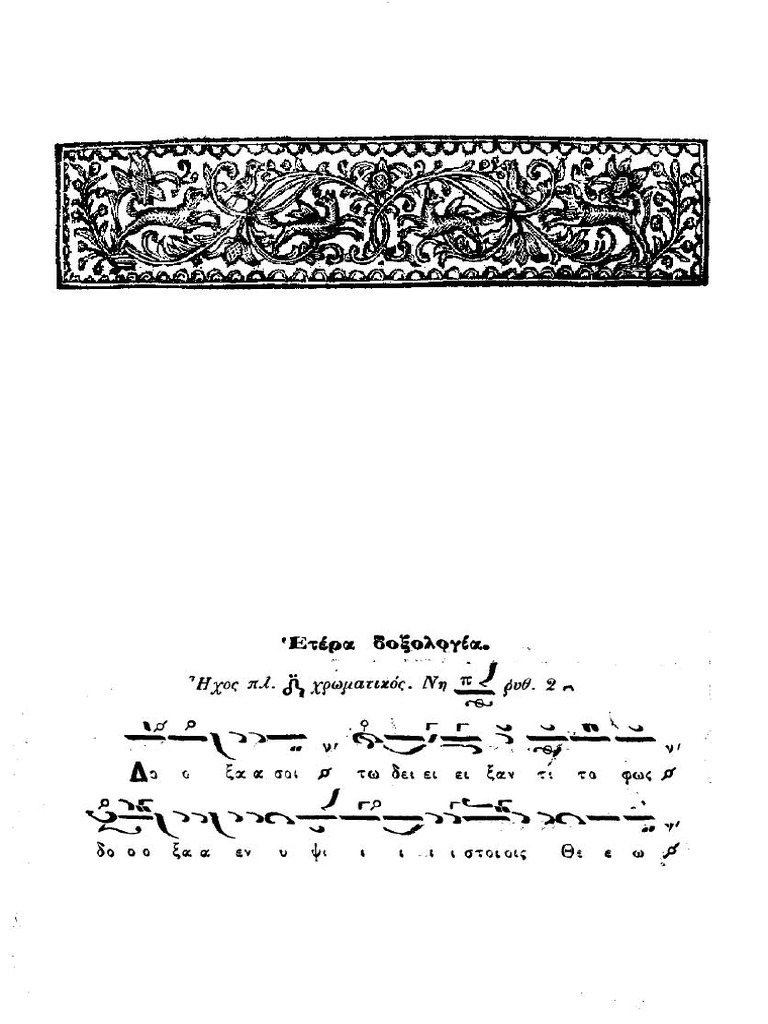 Ἑτέρα δοξολογία.
Ἦχος πλ. χρωματικός. Νη π ῥυθ. 2
Δο ο ξα α σοι τω δει ει ει ξαν τι το φως
δο ο ο ξα α εν υ ψι ι ι ι ι στοι οις Θε ε ω